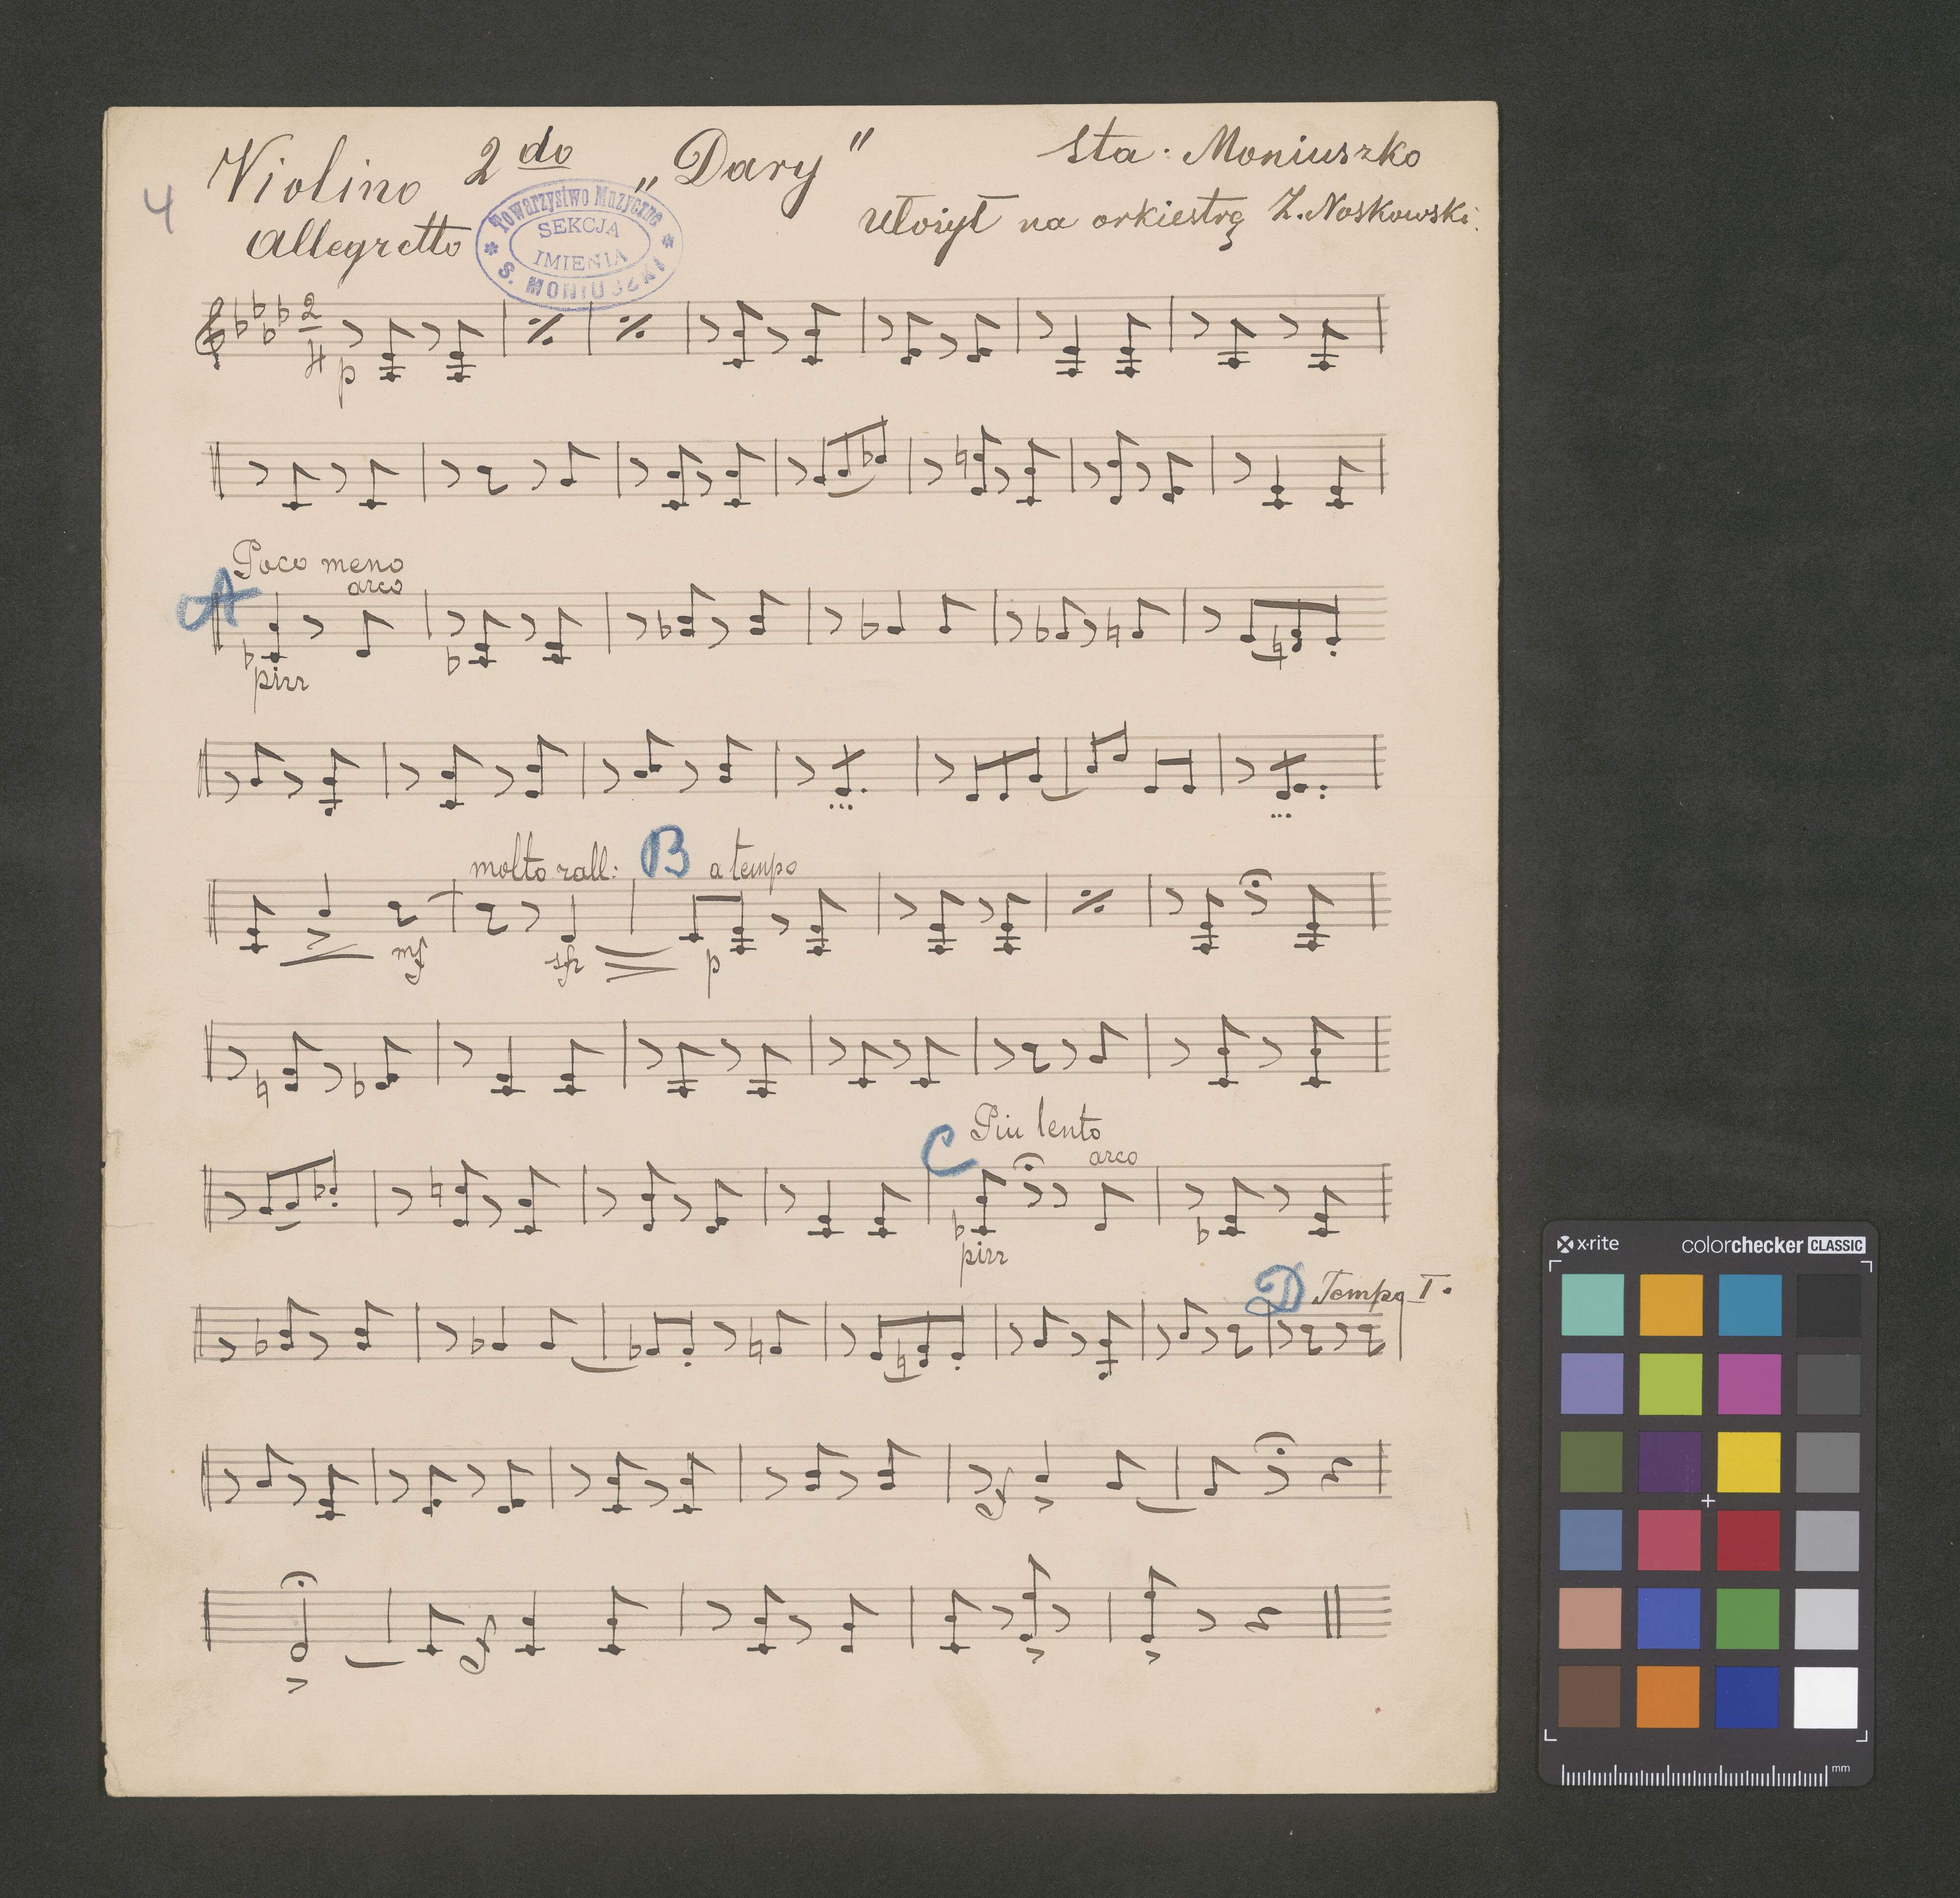 Violino 2do „Dary" Sta: Moniuszko
4
Ułożył na orkiestrę Z. Noskowski.
Allegretto
Towarzystwo Muzyczne
SEKCJA
IMIENIA
S. MONIUSZKI
2
4
p
Poco meno
A arco
pizz
molto rall: B a tempo
mf sfz p
Piu lento
C arco
pizz
D Tempo I.
x·rite colorchecker CLASSIC
mm